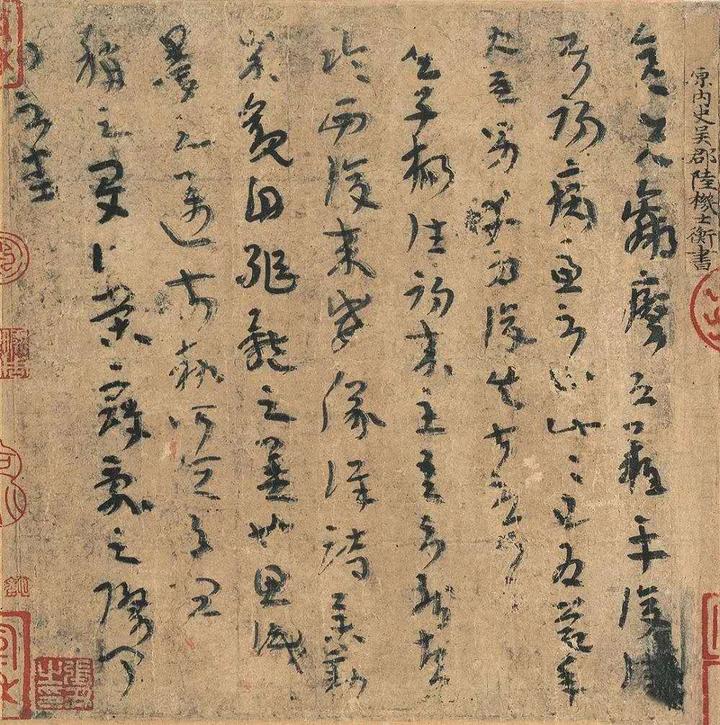 原内史吳郡陸機士衡書
彦先羸瘵恐難平復往屬
初病慮不止此此已為慶承
使唯男幸為復失前憂耳
吳子楊往初來主吾不能盡
臨西復來威儀詳跱舉動
成觀自軀體之美也思識
量之邁前執所恒有宜
稱之夏伯榮寇亂之際聞
問不悉